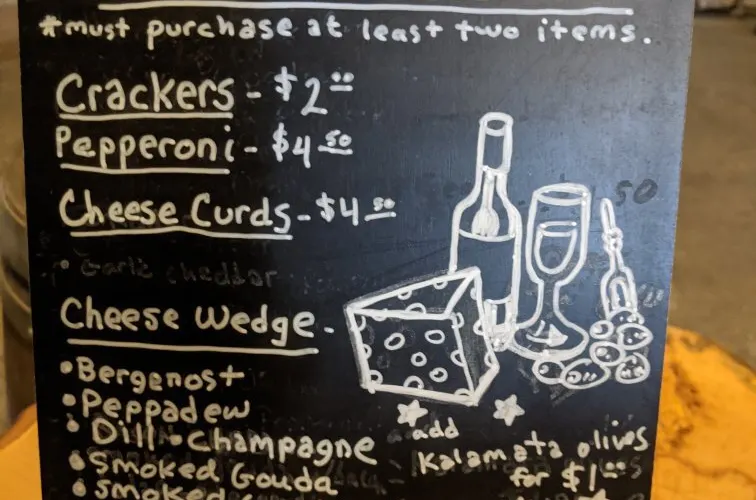 *must purchase at least two items.
Crackers - $2.00
Pepperoni - $4.50
Cheese Curds - $4.50
• Garlic cheddar
Cheese Wedge -
• Bergenost
• Peppadew
• Dill • Champagne
• Smoked Gouda
• Smoked
add
Kalamata olives
for $1.00
50